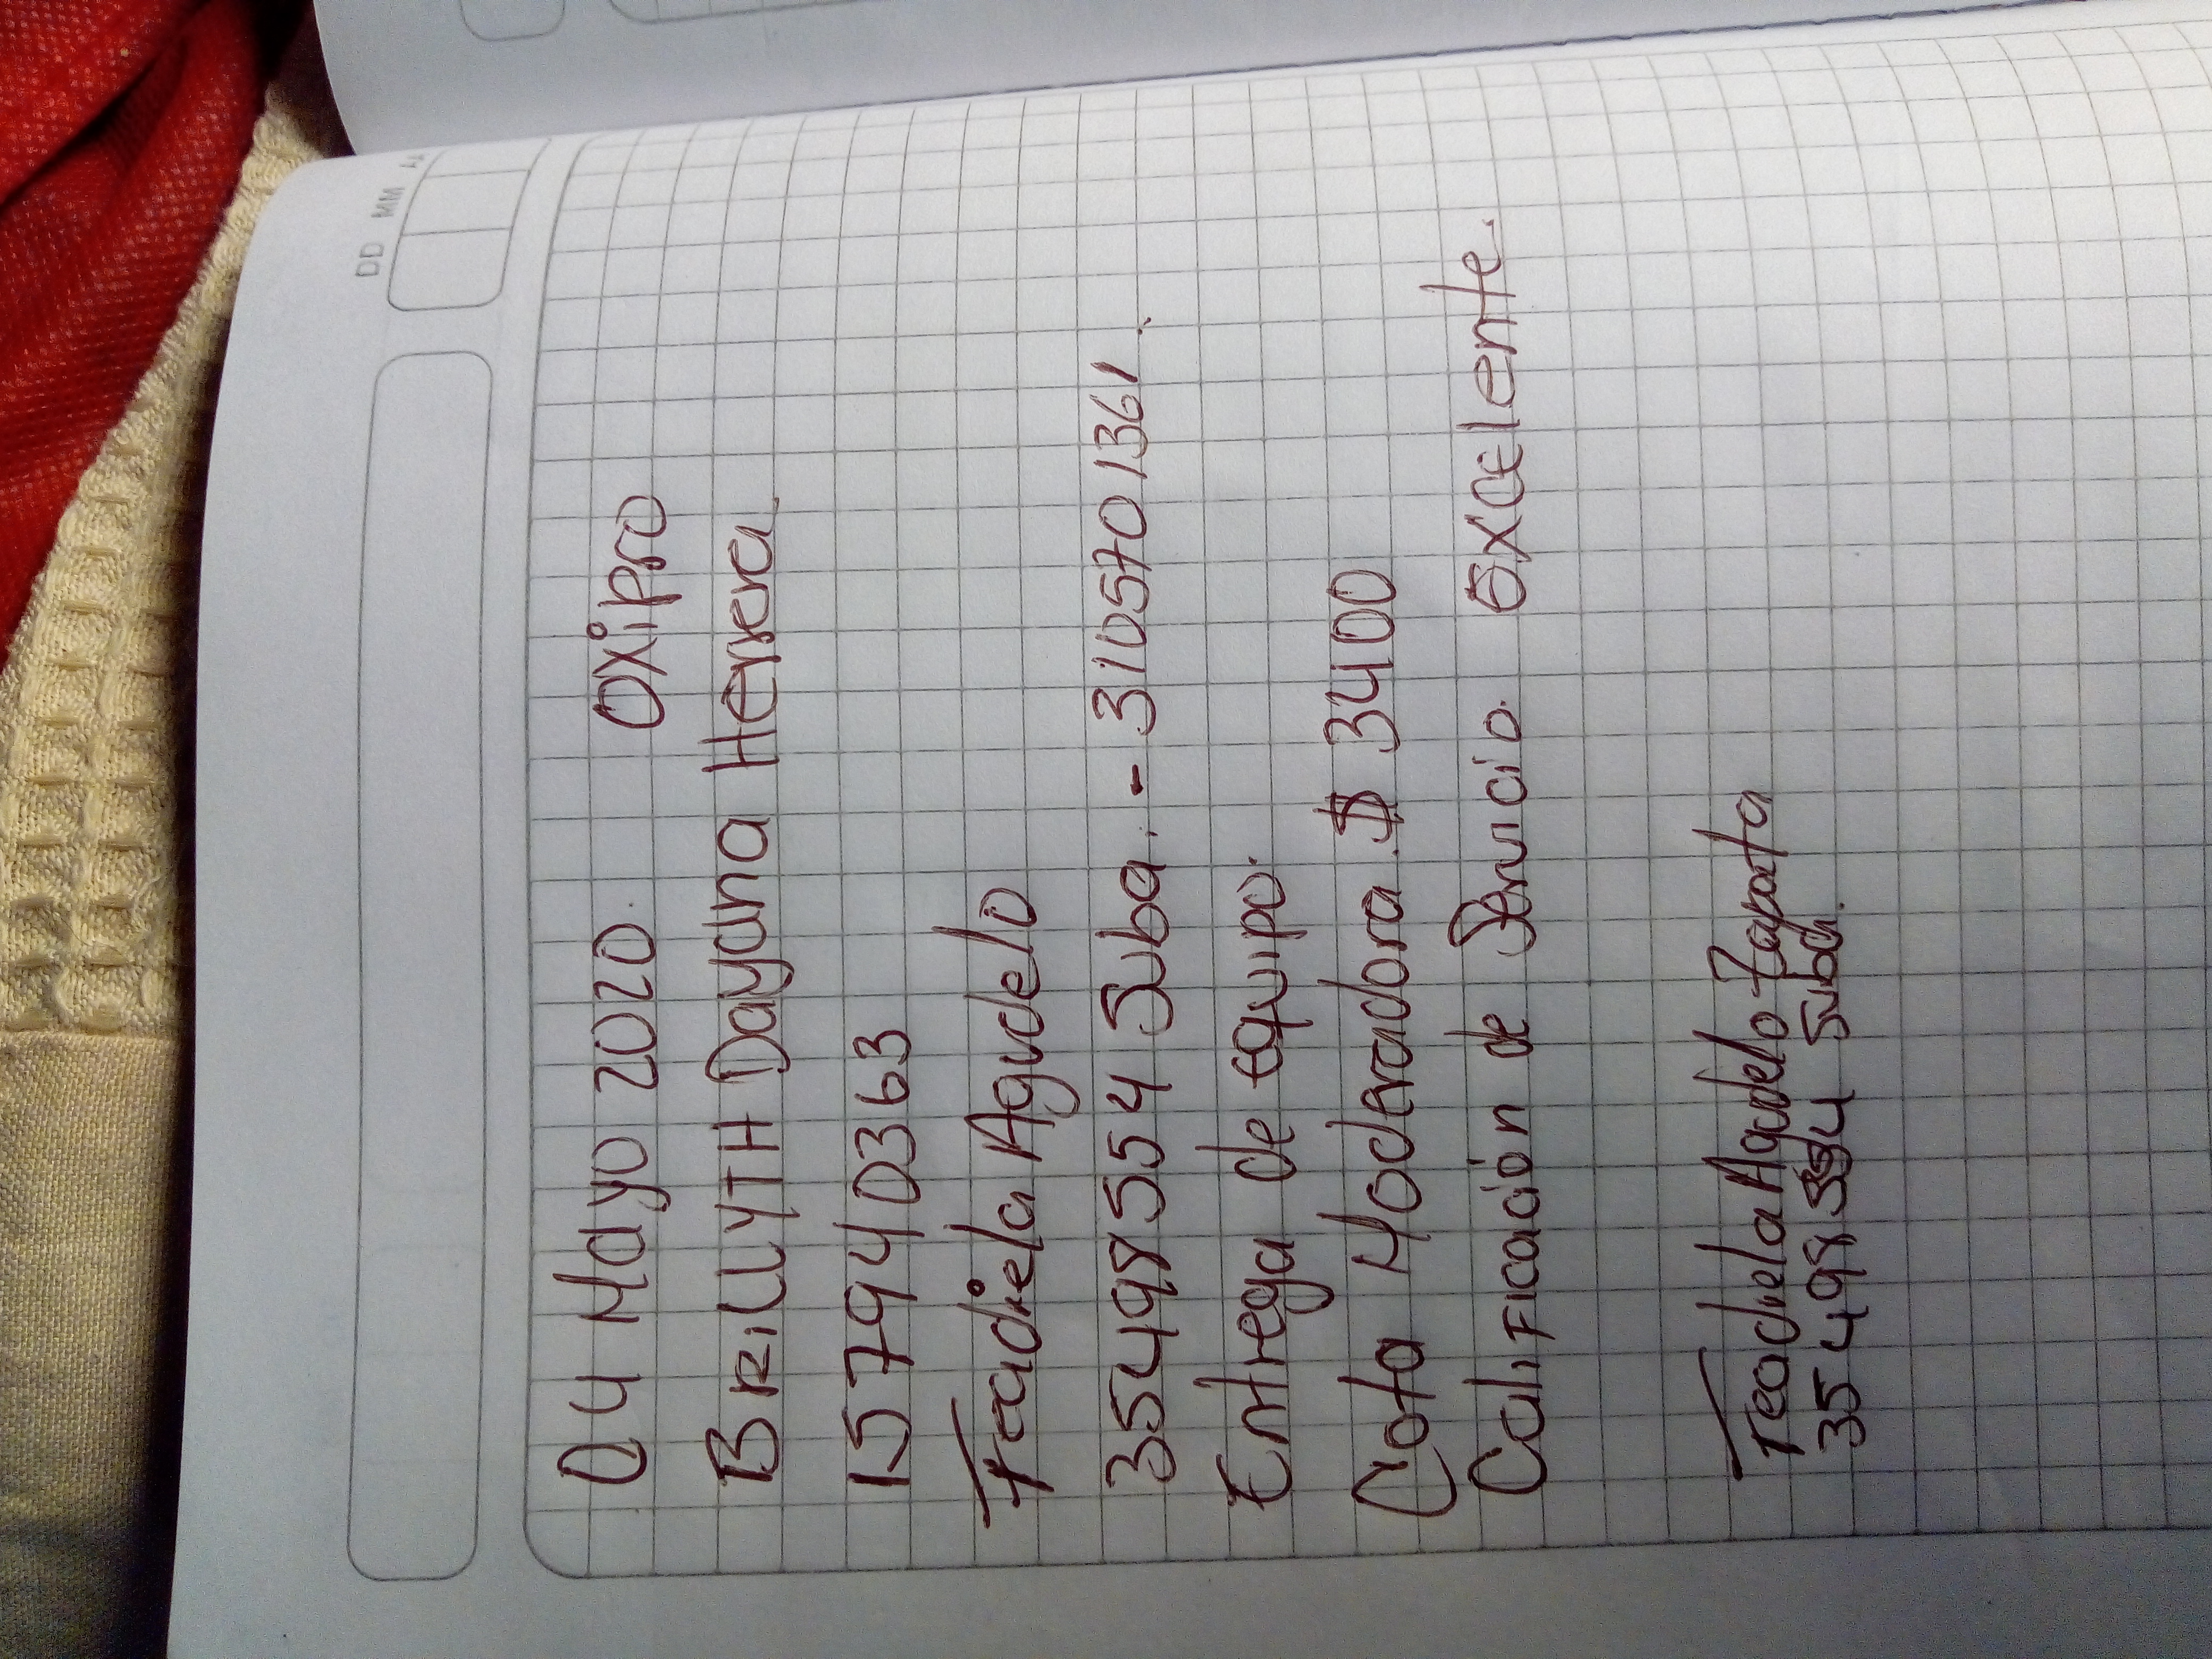 DD MM AA
04 Mayo 2020. OXiPro
BRillYTH Dayana Herrera
1.57940363
Fradiela Agudelo
35498554 Suba. - 3105701361.
Entrega de equipo.
Cuota Moderadora $ 3400
Calificación de Servicio. excelente.
Fradiela Agudelo Zapata
35498554 Suba.